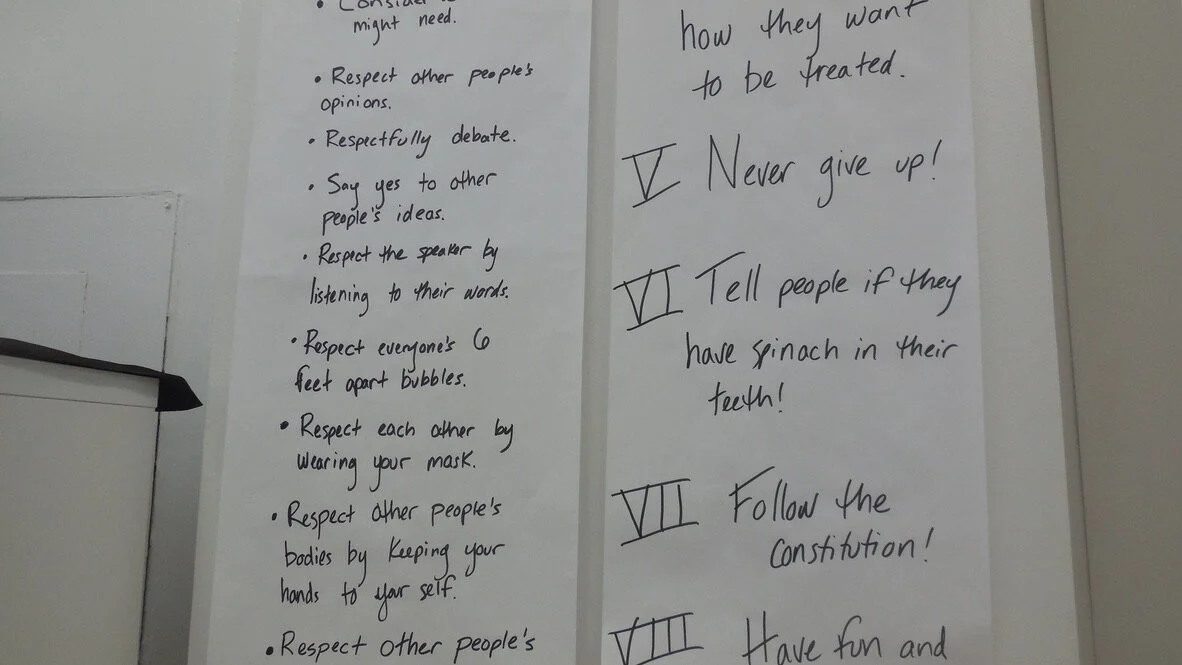 • Consider
might need.
• Respect other people's
opinions.
• Respectfully debate.
• Say yes to other
people's ideas.
• Respect the speaker by
listening to their words.
• Respect everyone's 6
feet apart bubbles.
• Respect each other by
wearing your mask.
• Respect other people's
bodies by keeping your
hands to your self.
• Respect other people's
how they want
to be treated.
V Never give up!
VI Tell people if they
have spinach in their
teeth!
VII Follow the
Constitution!
VIII Have fun and